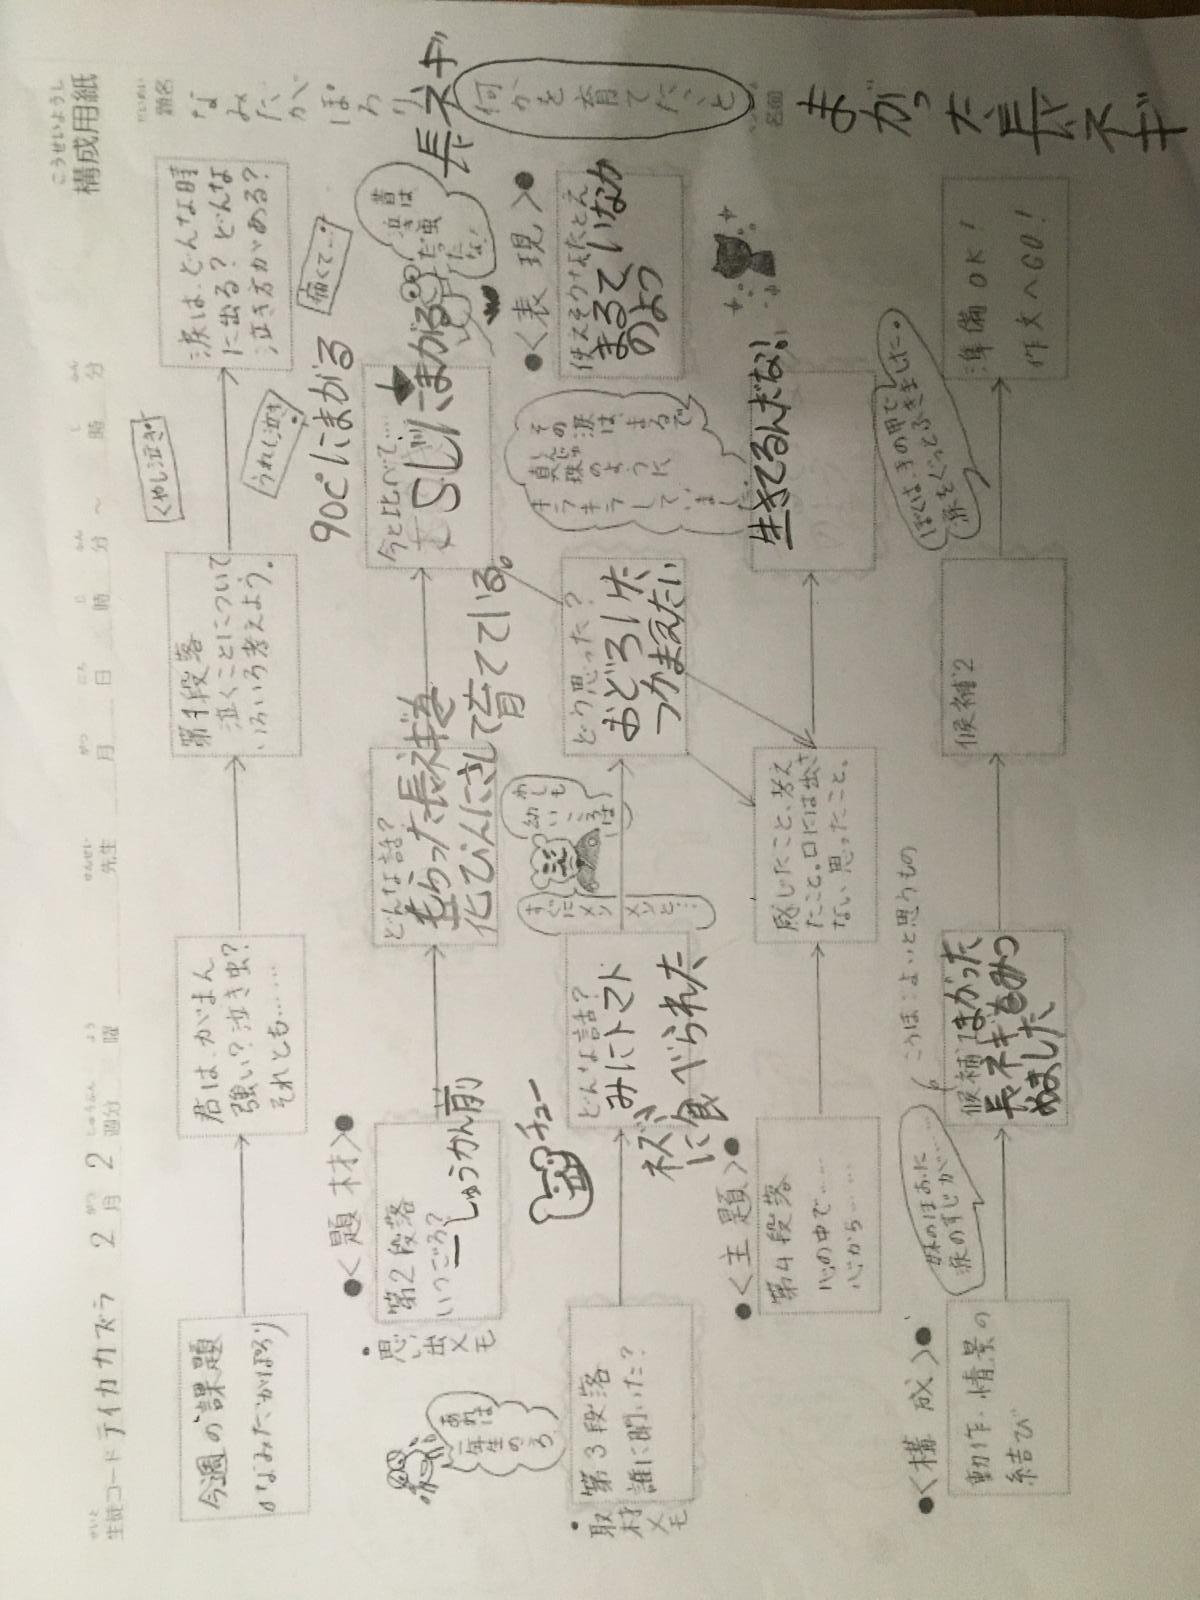 こうせいようし
構成用紙
生徒コード テイカカズラ 2月 2週分 曜 先生 月 日 時 分 ～ 時 分
題名
なみだがぽろり
長ネギ
何かを育てたこと
名前
まがった長ネギ
今週の課題
なみだがぽろり
君は、がまん
強い？泣き虫？
それとも……
第1段落
泣くことについて
いろいろ考えよう。
涙は、どんな時
に出る？どんな
泣き方がある？
くやし泣き
うれし泣き
痛くて…
●＜題材＞●
・思い出メモ
第2段落
いつごろ？
一しゅうかん前
どんな話？
もらった長ネギを
花びんにさして育てている。
今と比べて……
90℃にまがる
Sじにまがる
昔は
泣き虫
だったな！
あれは
一年生のころ
・取材メモ
第3段落
誰に聞いた？
チュー
どんな話？
みにトマト
ネズミ
に食べられた
すぐに
メソメソと…
わしも
幼い
ころは
どう思った？
おどろいた
つかまえたい
●＜表現＞●
使えそうなたとえ
まるでいなか
のよう
その涙は、まるで
真珠のように
キラキラしていました。
●＜主題＞●
第4段落
心の中で……
心から……
感じたこと、考え
たこと。口には出さ
ない思ったこと。
生きてるんだな！
●＜構成＞●
動作・情景の
結び
妹のほおに
涙のすじが……
こうほ：よいと思うもの
候補1
まがった
長ネギをみつ
めました
候補2
ぼくは、手の甲で
涙をぐっとふきました。
準備OK！
作文へGO！